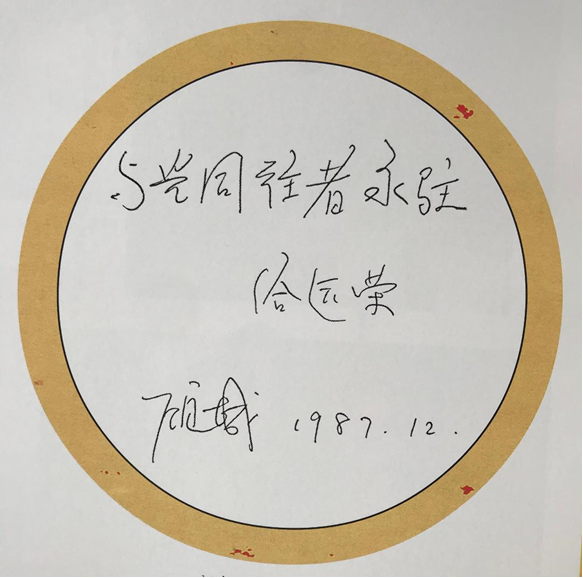 与光同往者永驻
给运荣
顾城 1987.12.